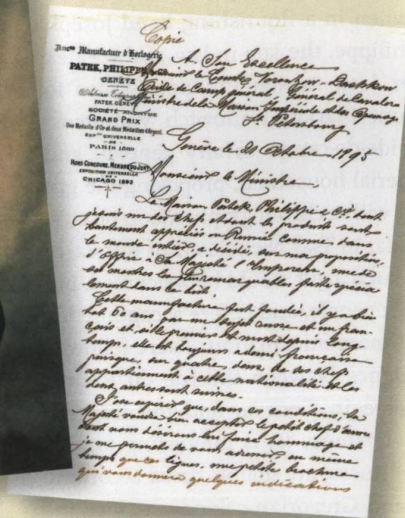 Copie
Ancne Manufacture d'Horlogerie
PATEK, PHILIPPE
GENÈVE
PATEK GENÈVE
SOCIÉTÉ ANONYME
GRAND PRIX
PARIS 1889
HORS CONCOURS, MEMBRE DU JURY
EXPOSITION UNIVERSELLE
CHICAGO 1893
A Son Excellence
le Comte
Aide de Camp général, Général de Cavalerie
Ministre de la Maison Impériale et des Apanages
St Pétersbourg
Genève le 20 Octobre 1895
Monsieur le Ministre,
La Maison Patek, Philippe & Cie dont
je suis un des chefs et dont les produits sont
hautement appréciés en Russie comme dans
le monde entier, a décidé, sur ma proposition,
d'offrir à Sa Majesté l'Empereur, une de
ses montres les plus remarquables faite
Cette manufacture fut fondée, il y a
60 ans par un et un fran-
çais et mort depuis long-
temps, elle est toujours à demi française
puisque, sur quatre, deux de ses chefs
appartiennent à cette nationalité et les
deux autres sont suisses.
J'ose espérer que, dans ces conditions, Sa
Majesté voudra bien accepter le petit chef d'œuvre
dont nous désirons lui faire hommage et
je me permets de vous adresser en même
temps que ces lignes, une petite brochure
qui vous donnera quelques indications